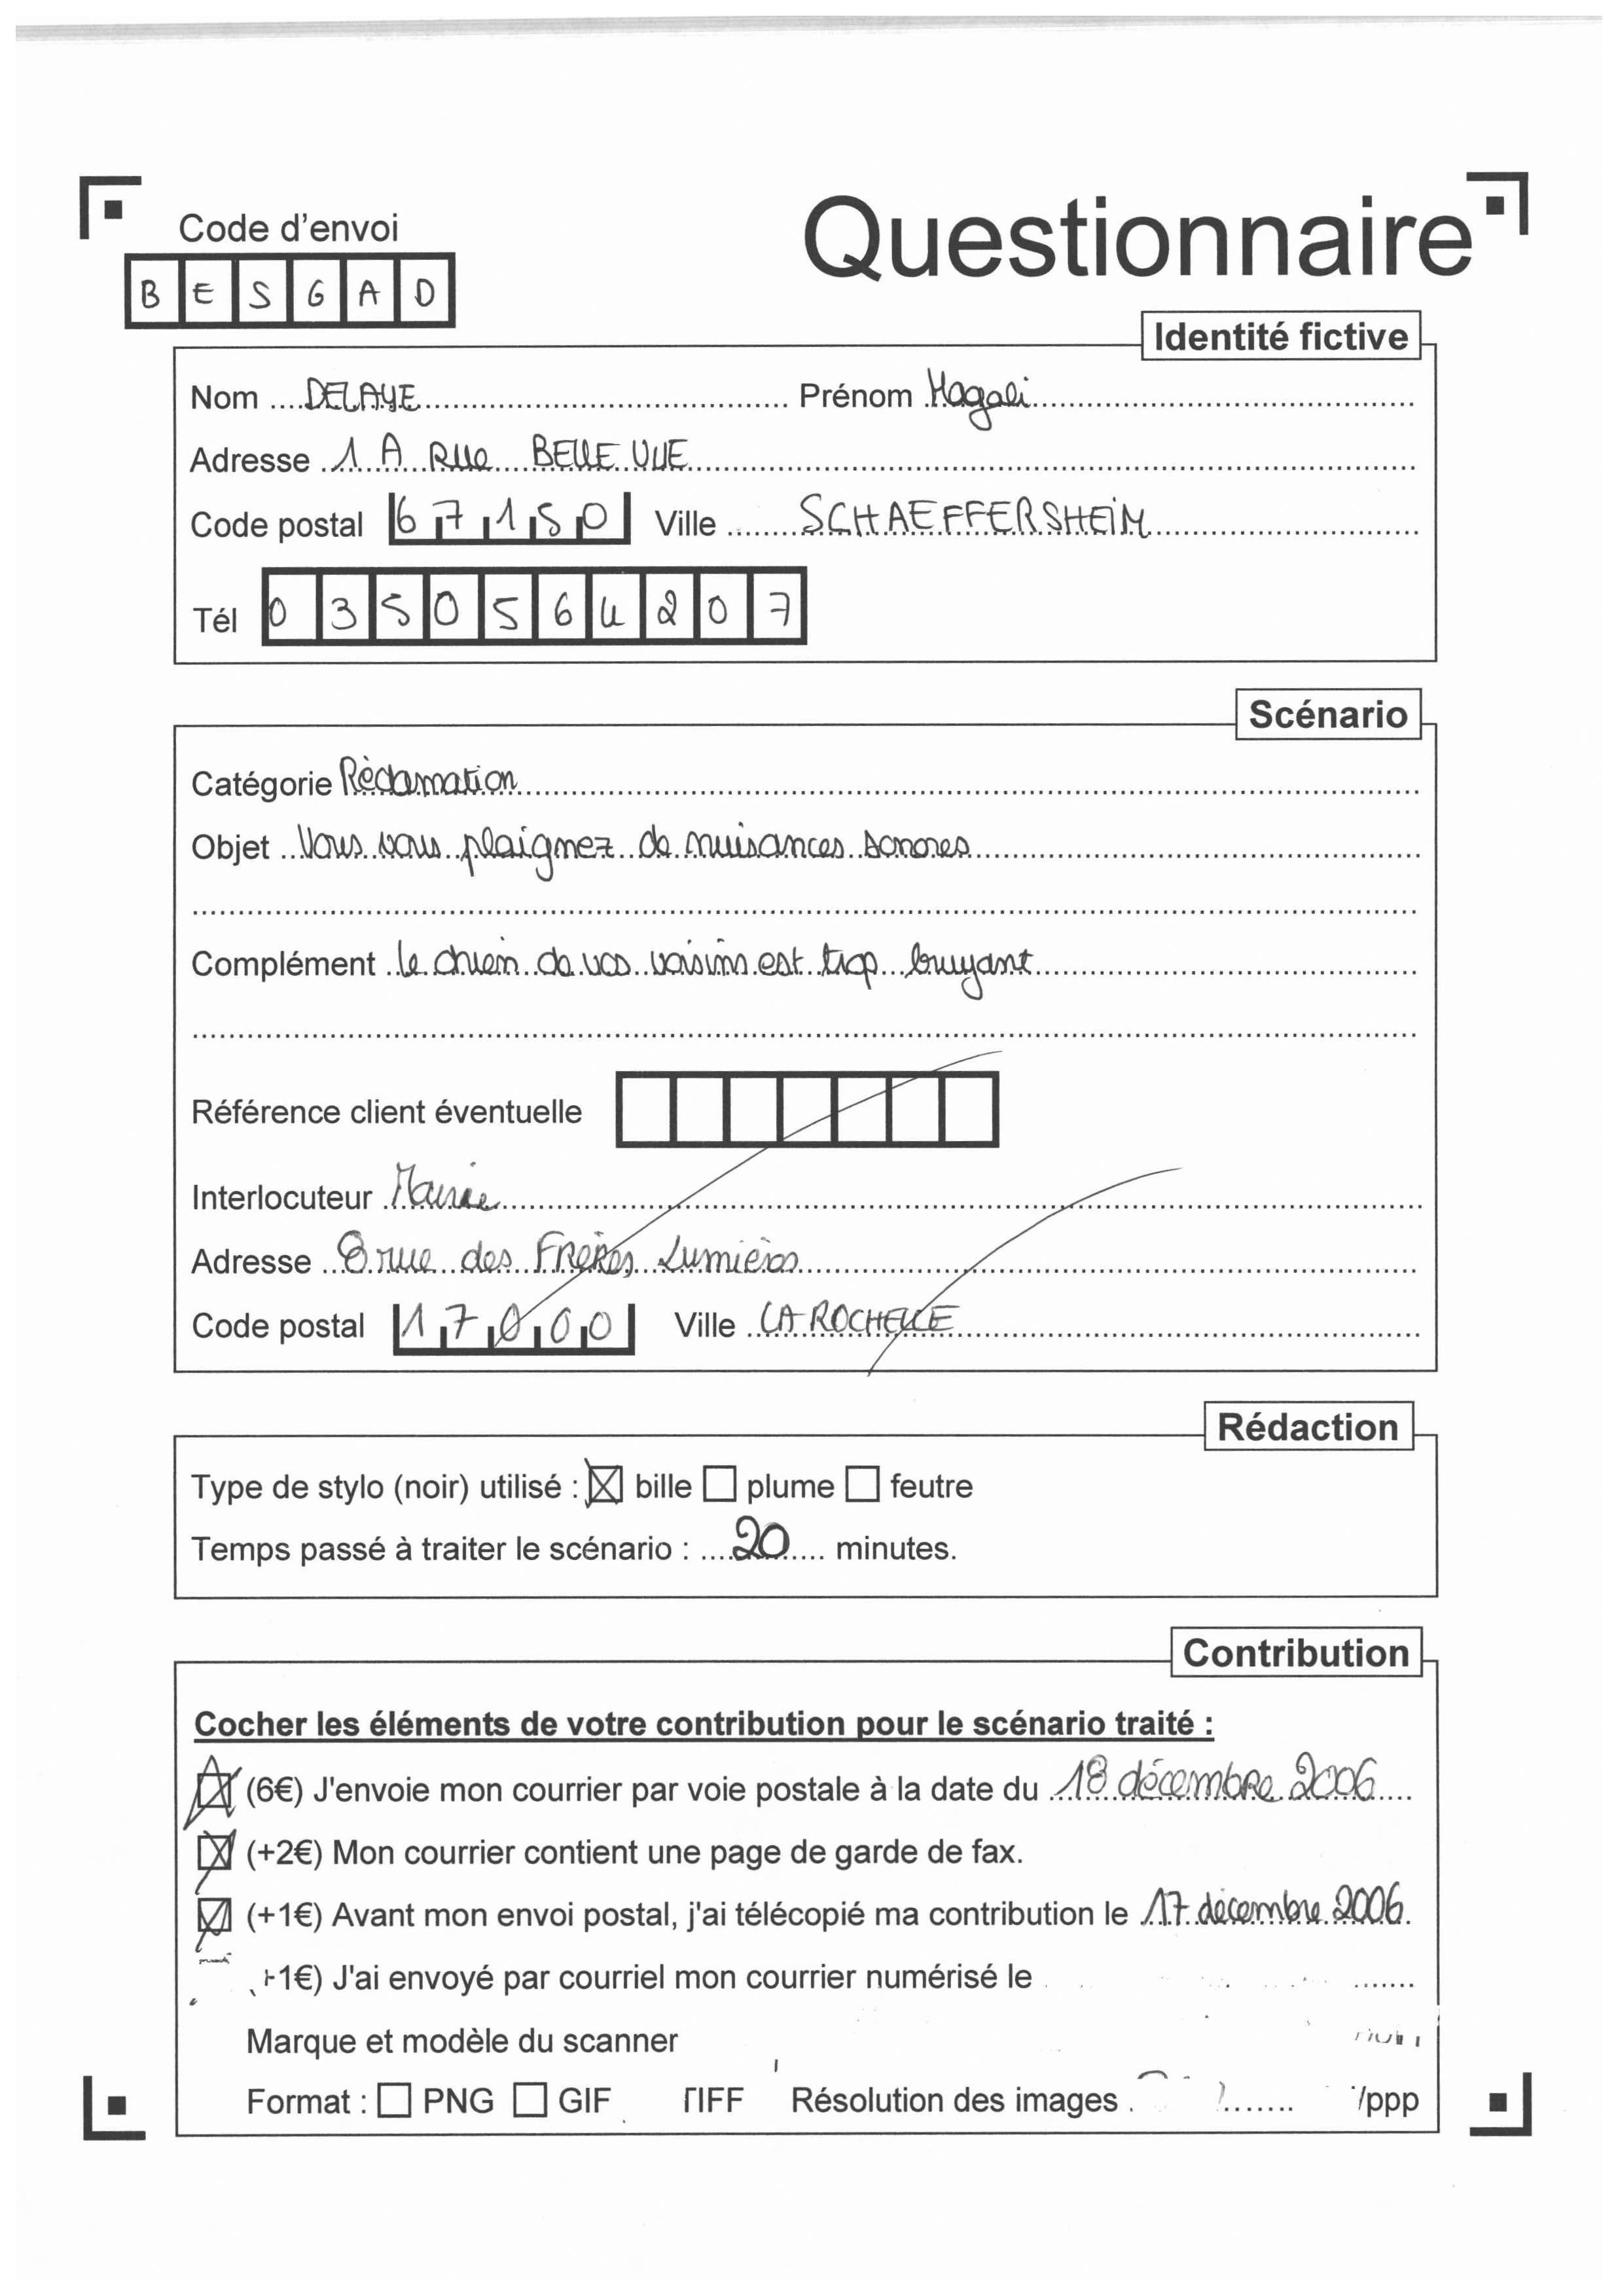 Code d'envoi
Questionnaire
B E S G A D
Identité fictive
Nom DELAYE Prénom Magali
Adresse 1 A Rue BELLE VUE
Code postal 67150 Ville SCHAEFFERSHEIM
Tél 0350564207
Scénario
Catégorie Réclamation
Objet Vous vous plaignez de nuisances sonores
Complément le chien de vos voisins est trop bruyant
Référence client éventuelle
Interlocuteur Mairie
Adresse 8 rue des FRERES Lumières
Code postal 17000 Ville LA ROCHELLE
Rédaction
Type de stylo (noir) utilisé : bille plume feutre
Temps passé à traiter le scénario : 20 minutes.
Contribution
Cocher les éléments de votre contribution pour le scénario traité :
(6€) J'envoie mon courrier par voie postale à la date du 18 décembre 2006
(+2€) Mon courrier contient une page de garde de fax.
(+1€) Avant mon envoi postal, j'ai télécopié ma contribution le 17 décembre 2006
+1€) J'ai envoyé par courriel mon courrier numérisé le
Marque et modèle du scanner
Format : PNG GIF TIFF Résolution des images /ppp